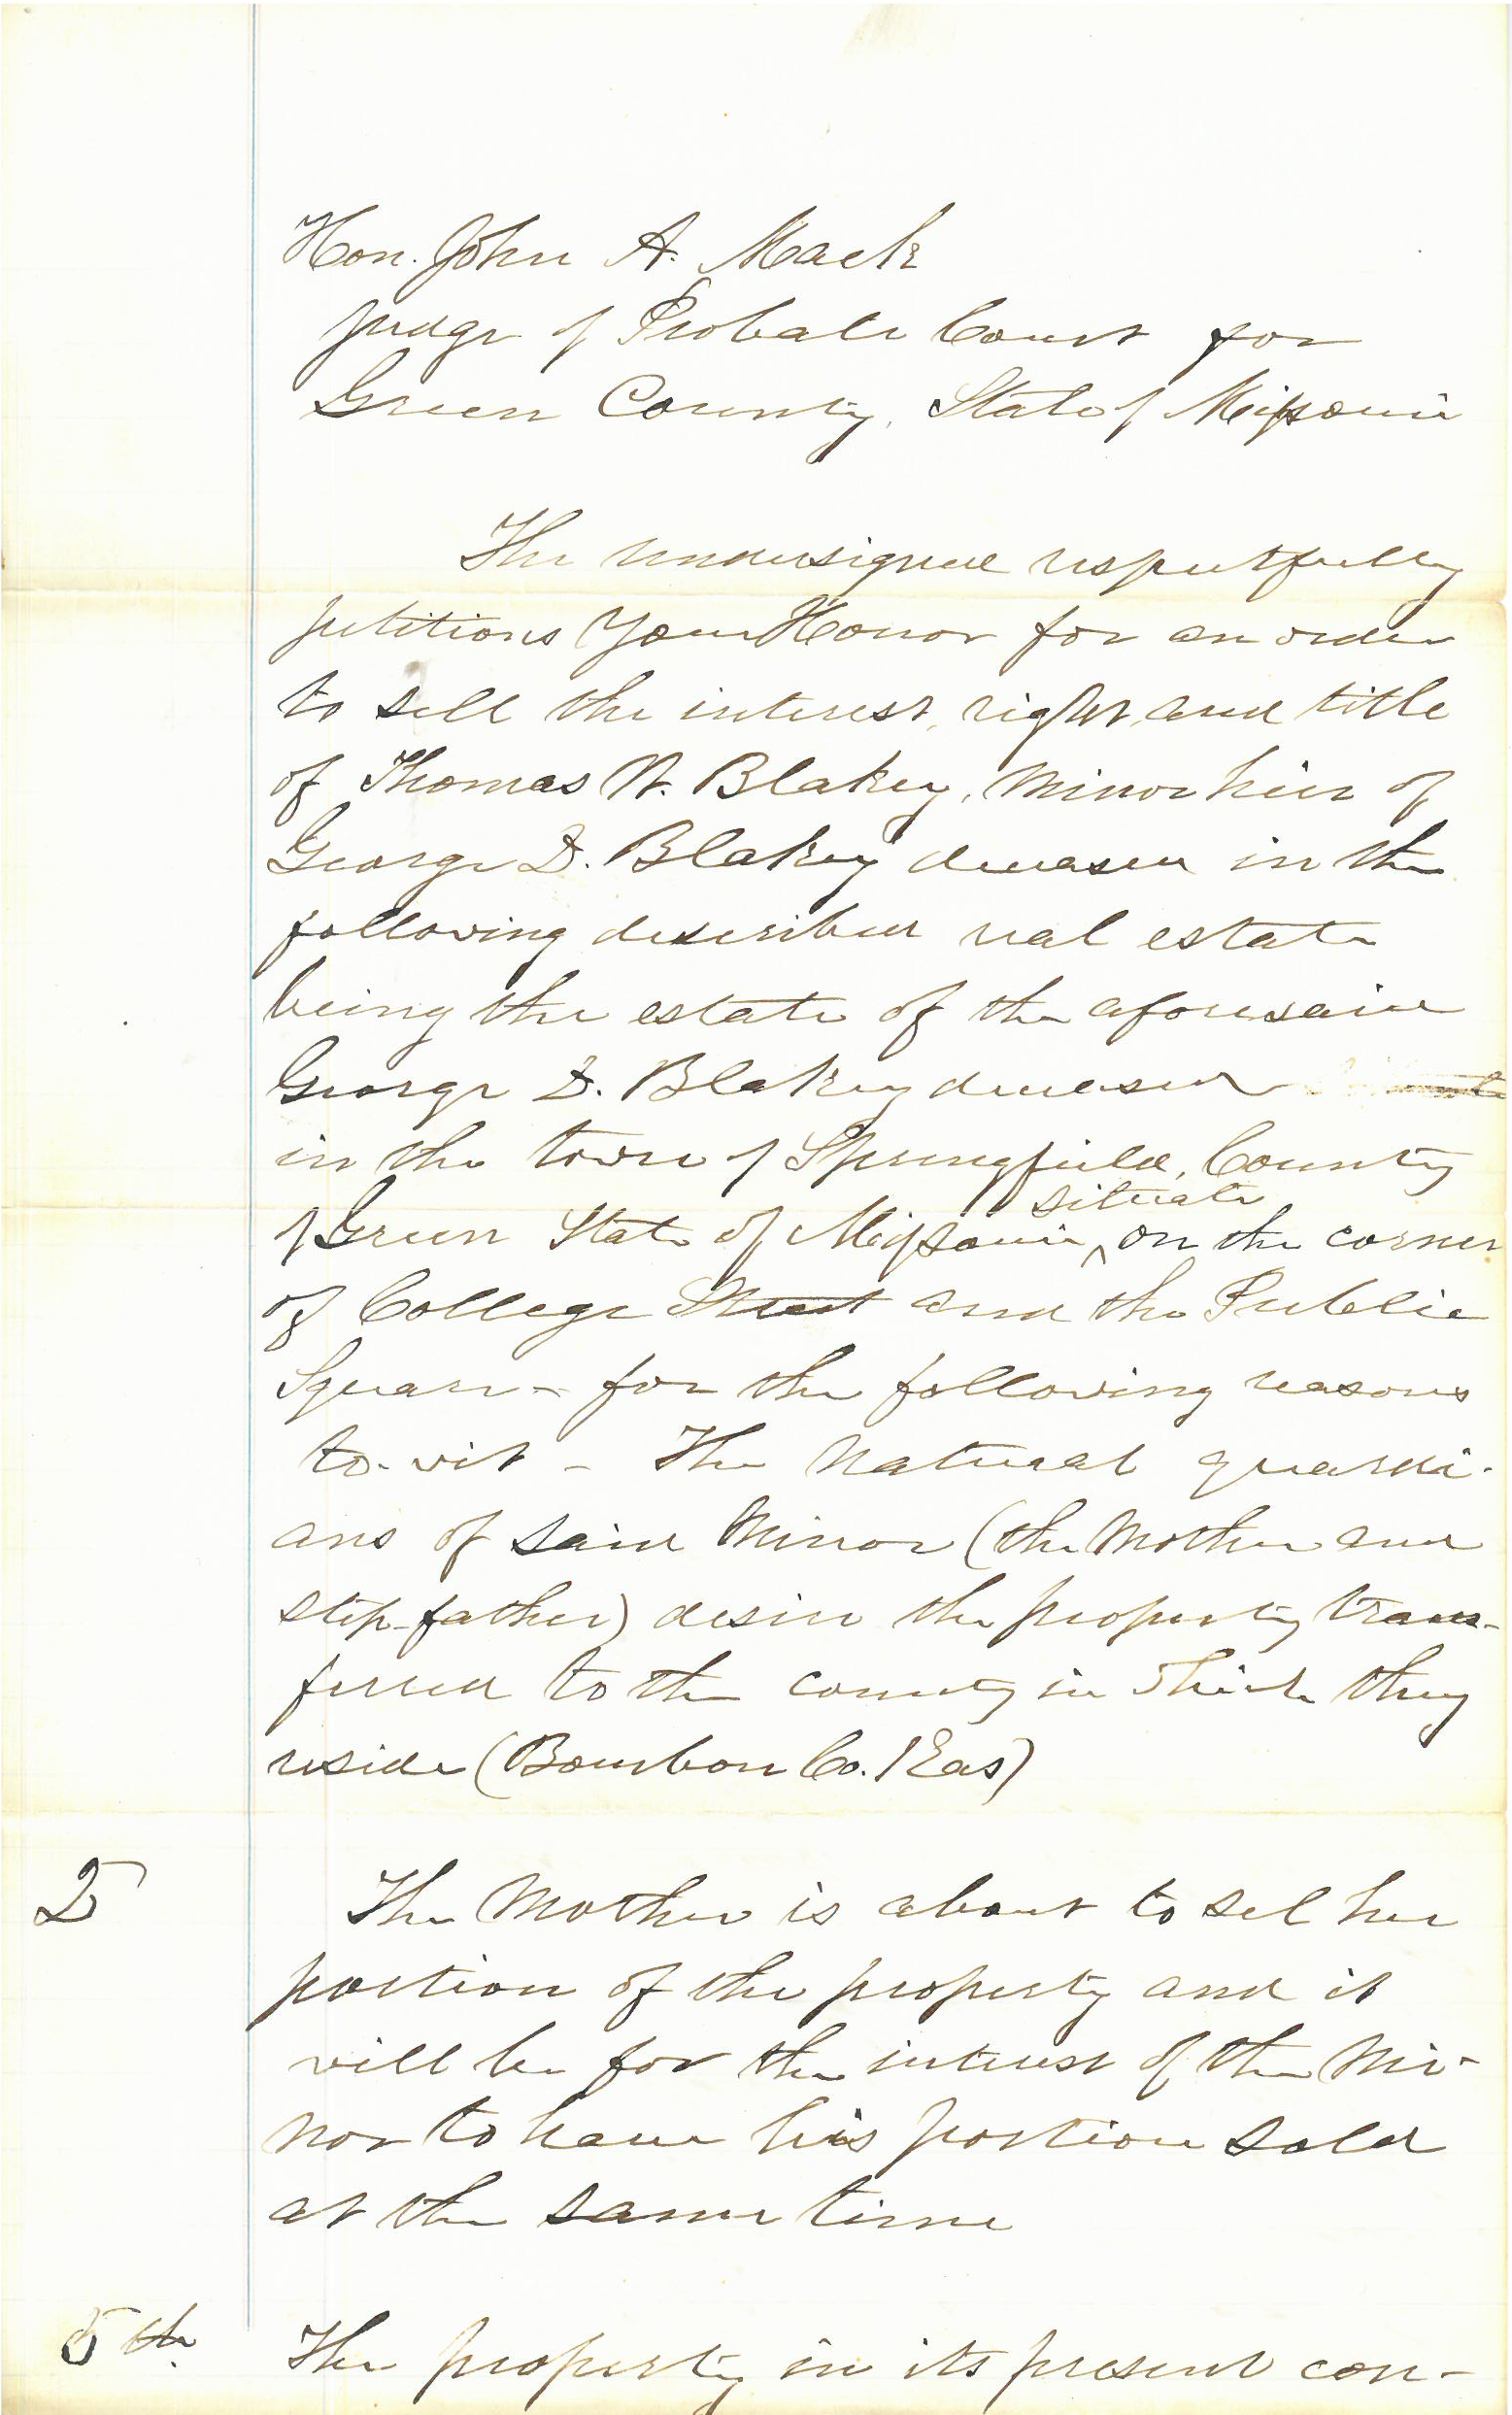 Hon. John A. Mack
Judge of Probate Court for
Green County, State of Missouri
The undersigned respectfully
petitions Your Honor for an order
to sell the interest, right, and title
of Thomas W. Blakey, minor heir of
George D. Blakey deceased in the
following described real estate
being the estate of the aforesaid
George D. Blakey deceased
in the town of Springfield, County
of Green State of Missouri, situate on the corner
of College Street and the Public
Square - for the following reasons
to-wit - The natural guardi-
ans of said Minor (the Mother and
step-father) desire the property trans-
ferred to the county in which they
reside (Bourbon Co. Kas)
2 The Mother is about to sel her
portion of the property and it
will be for the interest of the Mi-
nor to have his portion sold
at the same time
5th The property in its present con-